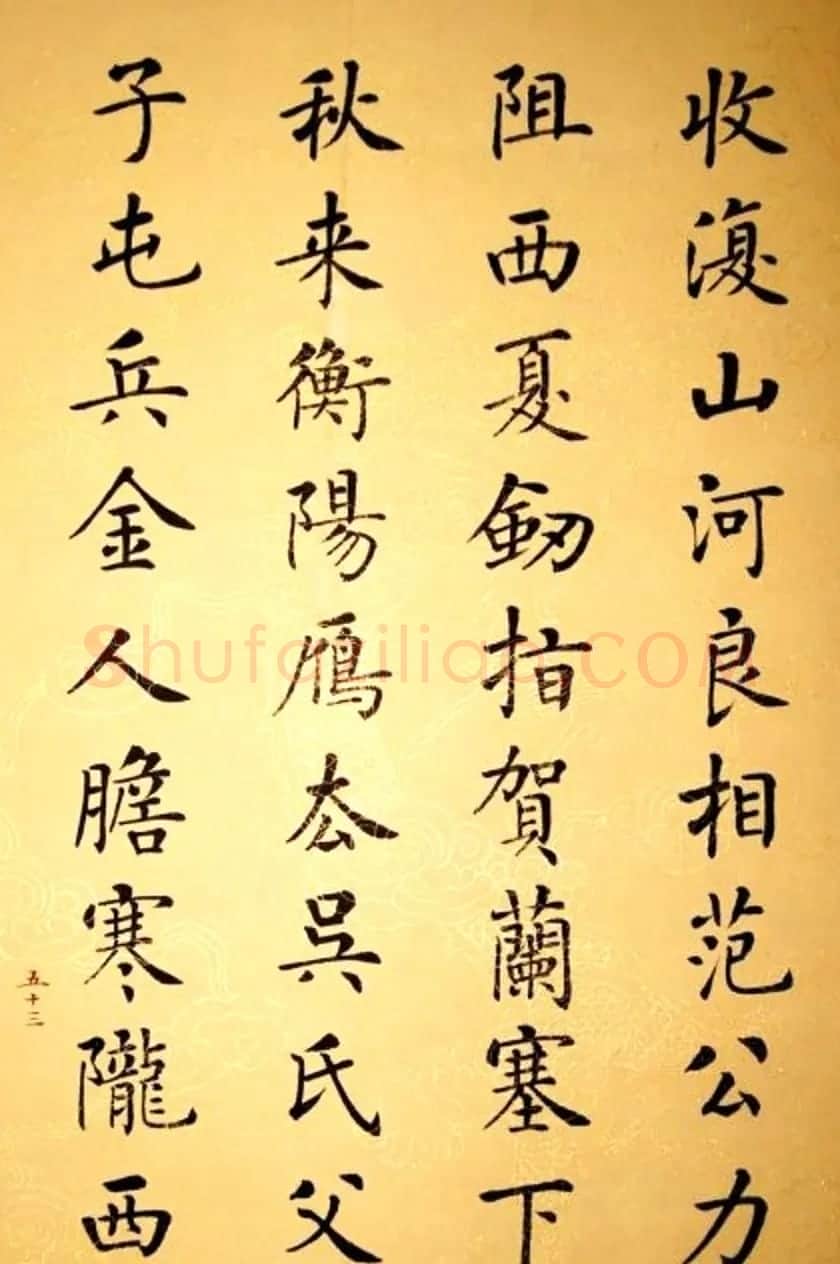 收復山河良相范公力
阻西夏釼指賀蘭塞下
秋来衡陽鴈厺吳氏父
子屯兵金人膽寒隴西
五十三
shufaziliao.com